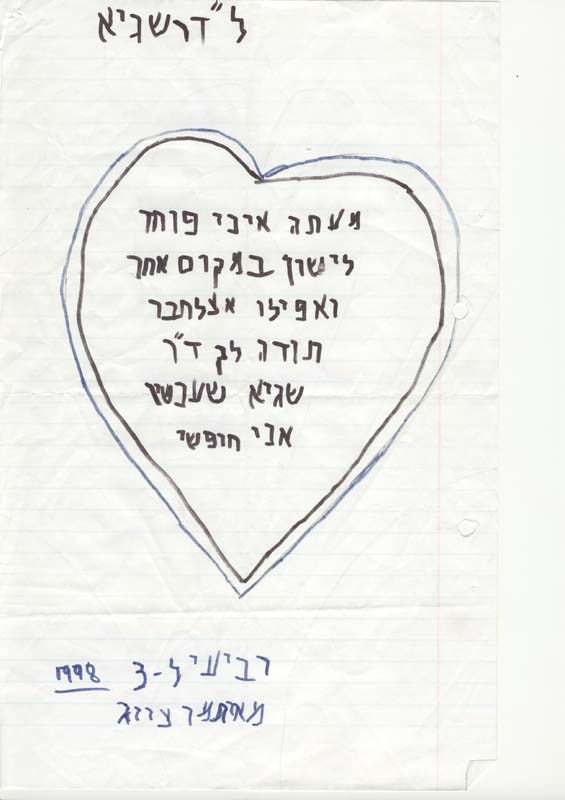 ל"דר שגיא
מעתה איני פוחד
לישון במקום אחר
ואפילו אצל חבר
תודה לך ד"ר
שגיא שעכשיו
אני חופשי
רביעי ל-3 1998